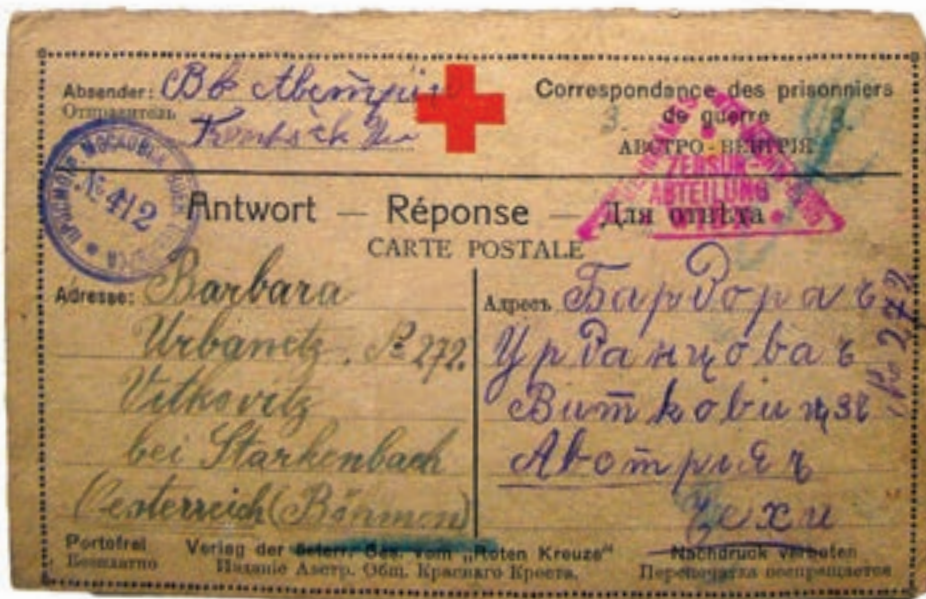 Absender: Въ Австрію
Отправитель
Correspondance des prisonniers
de guerre
АВСТРО-ВЕНГРІЯ
ZENSUR-
ABTEILUNG
WIEN
№ 412
Antwort — Réponse — Для отвѣта
CARTE POSTALE
Adresse: Barbara
Urbanetz. № 272.
Vitkovitz
bei Starkenbach
Oesterreich (Böhmen)
Адресъ
Урбанцоваъ
Витковицзе
№ 272
Чехи
Portofrei
Безплатно
Verlag der österr. Ges. vom „Roten Kreuze"
Изданіе Австр. Общ. Краснаго Креста.
Nachdruck verboten
Перепечатка воспрещается